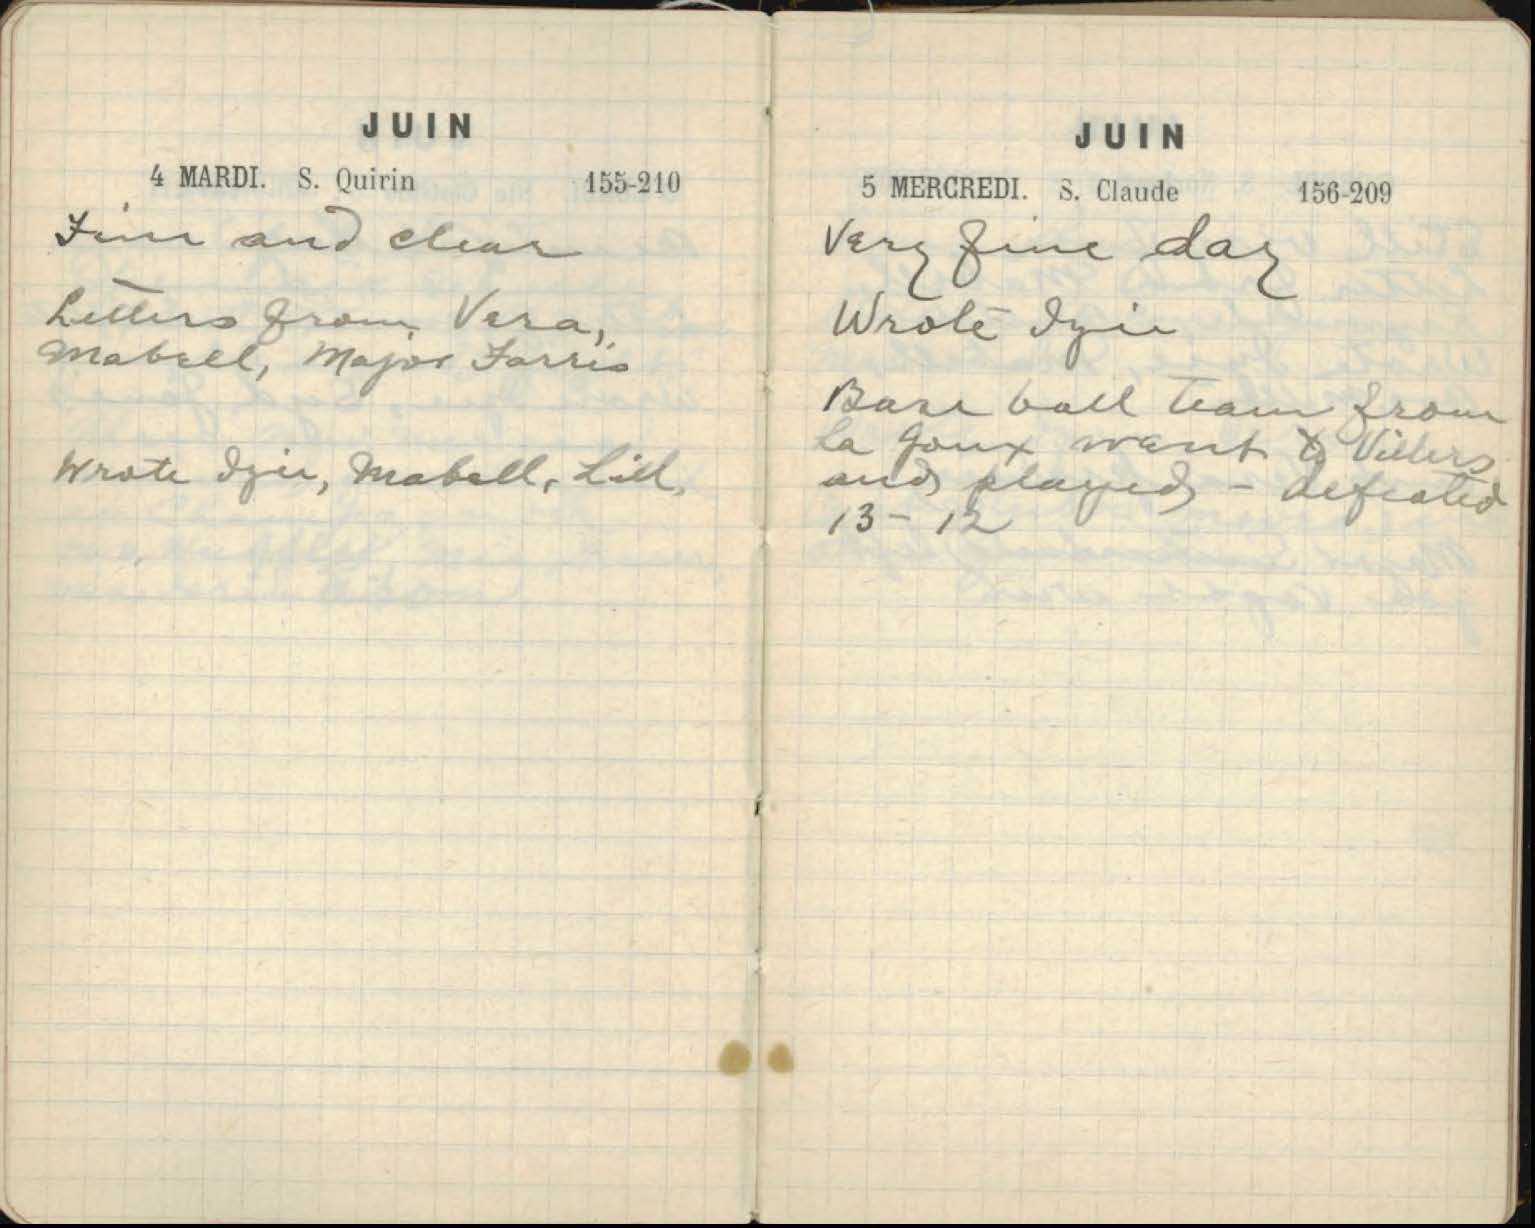 JUIN
4 MARDI. S. Quirin 155-210
Fine and clear
Letters from Vera,
Mabell, Major Farris
Wrote Izie, Mabell, Lill,
JUIN
5 MERCREDI. S. Claude 156-209
Very fine day
Wrote Izie
Base ball team from
La Joux went to Villers
and played - defeated
13 - 12